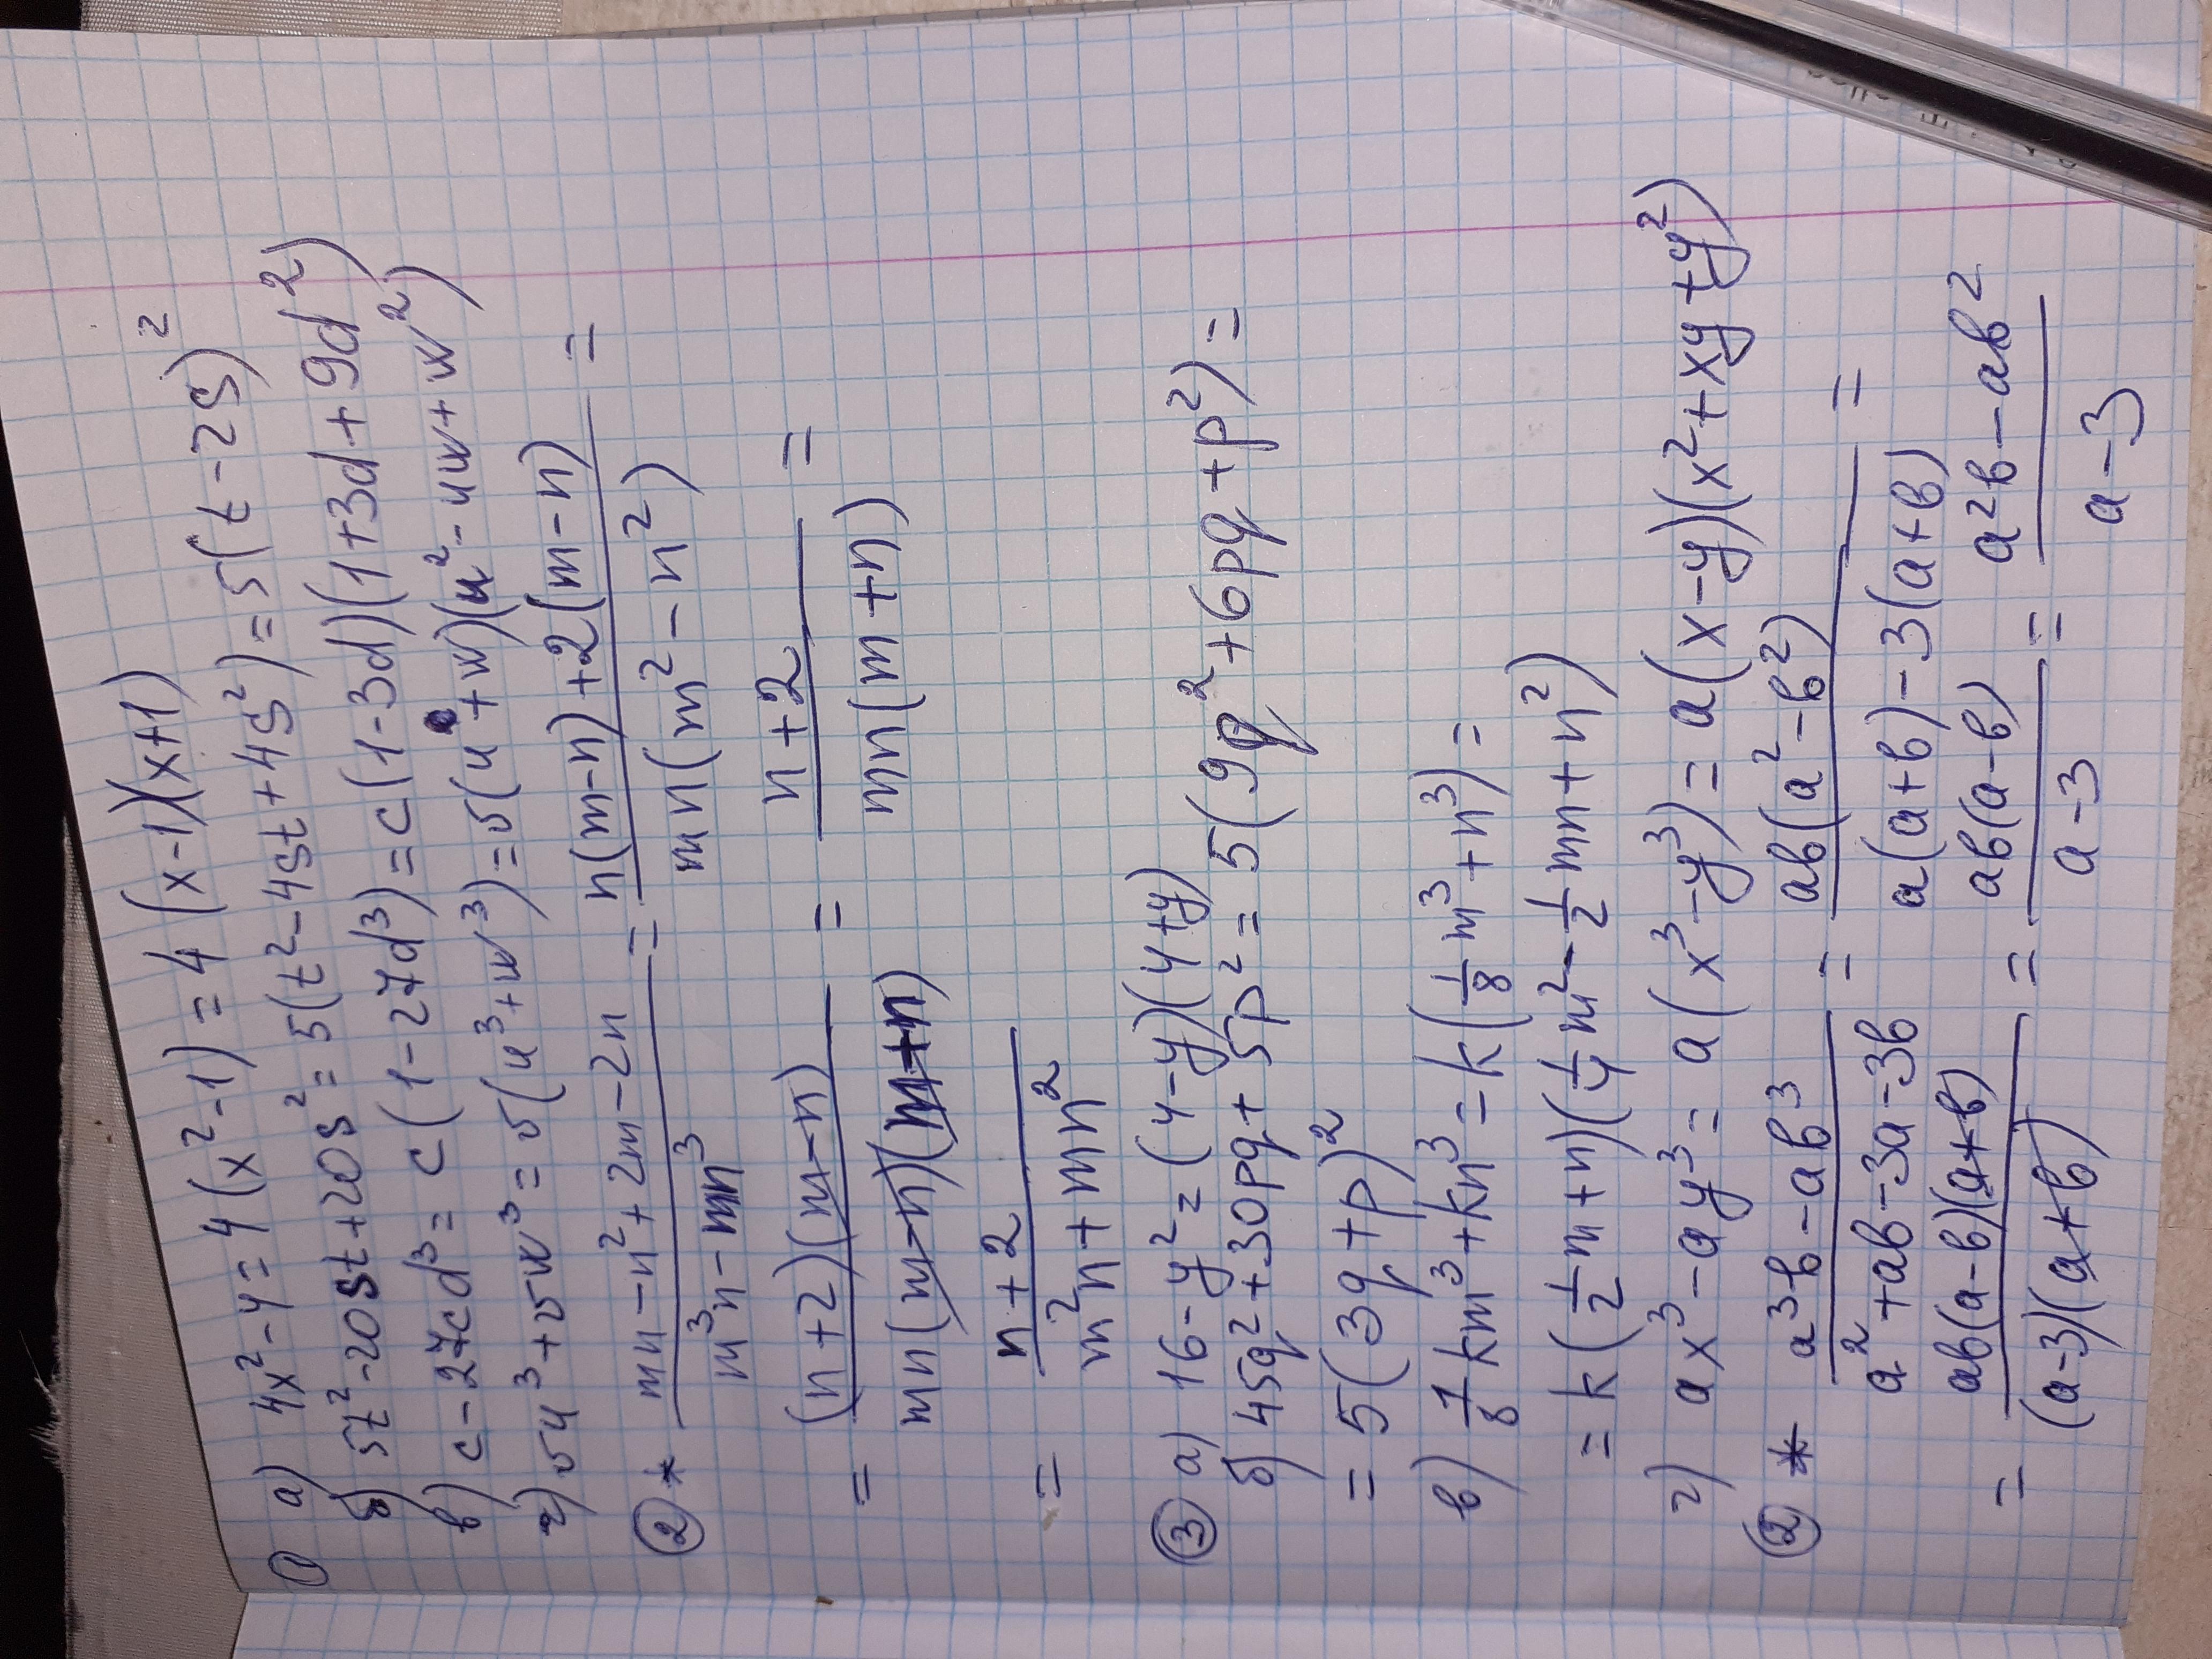 ① а) 4x²-4=4(x²-1)=4(x-1)(x+1)
б) 5t²-20st+20s²=5(t²-4st+4s²)=5(t-2s)²
в) c-27cd³=c(1-27d³)=c(1-3d)(1+3d+9d²)
г) vu³+vw³=v(u³+w³)=v(u+w)(u²-uw+w²)
②* (mn-n²+2m-2n)/(m³n-mn³) = (n(m-n)+2(m-n))/(mn(m²-n²)) =
= ((n+2)(m-n))/(mn(m-n)(m+n)) = (n+2)/(mn(m+n)) =
= (n+2)/(m²n+mn²)
③ а) 16-y²=(4-y)(4+y)
б) 45q²+30pq+5p²=5(9q²+6pq+p²)=
=5(3q+p)²
в) 1/8 km³+kn³=k(1/8 m³+n³)=
=k(1/2 m+n)(1/4 m²-1/2 mn+n²)
г) ax³-ay³=a(x³-y³)=a(x-y)(x²+xy+y²)
②* (a³b-ab³)/(a²+ab-3a-3b) = (ab(a²-b²))/(a(a+b)-3(a+b)) =
= (ab(a-b)(a+b))/((a-3)(a+b)) = (ab(a-b))/(a-3) = (a²b-ab²)/(a-3)